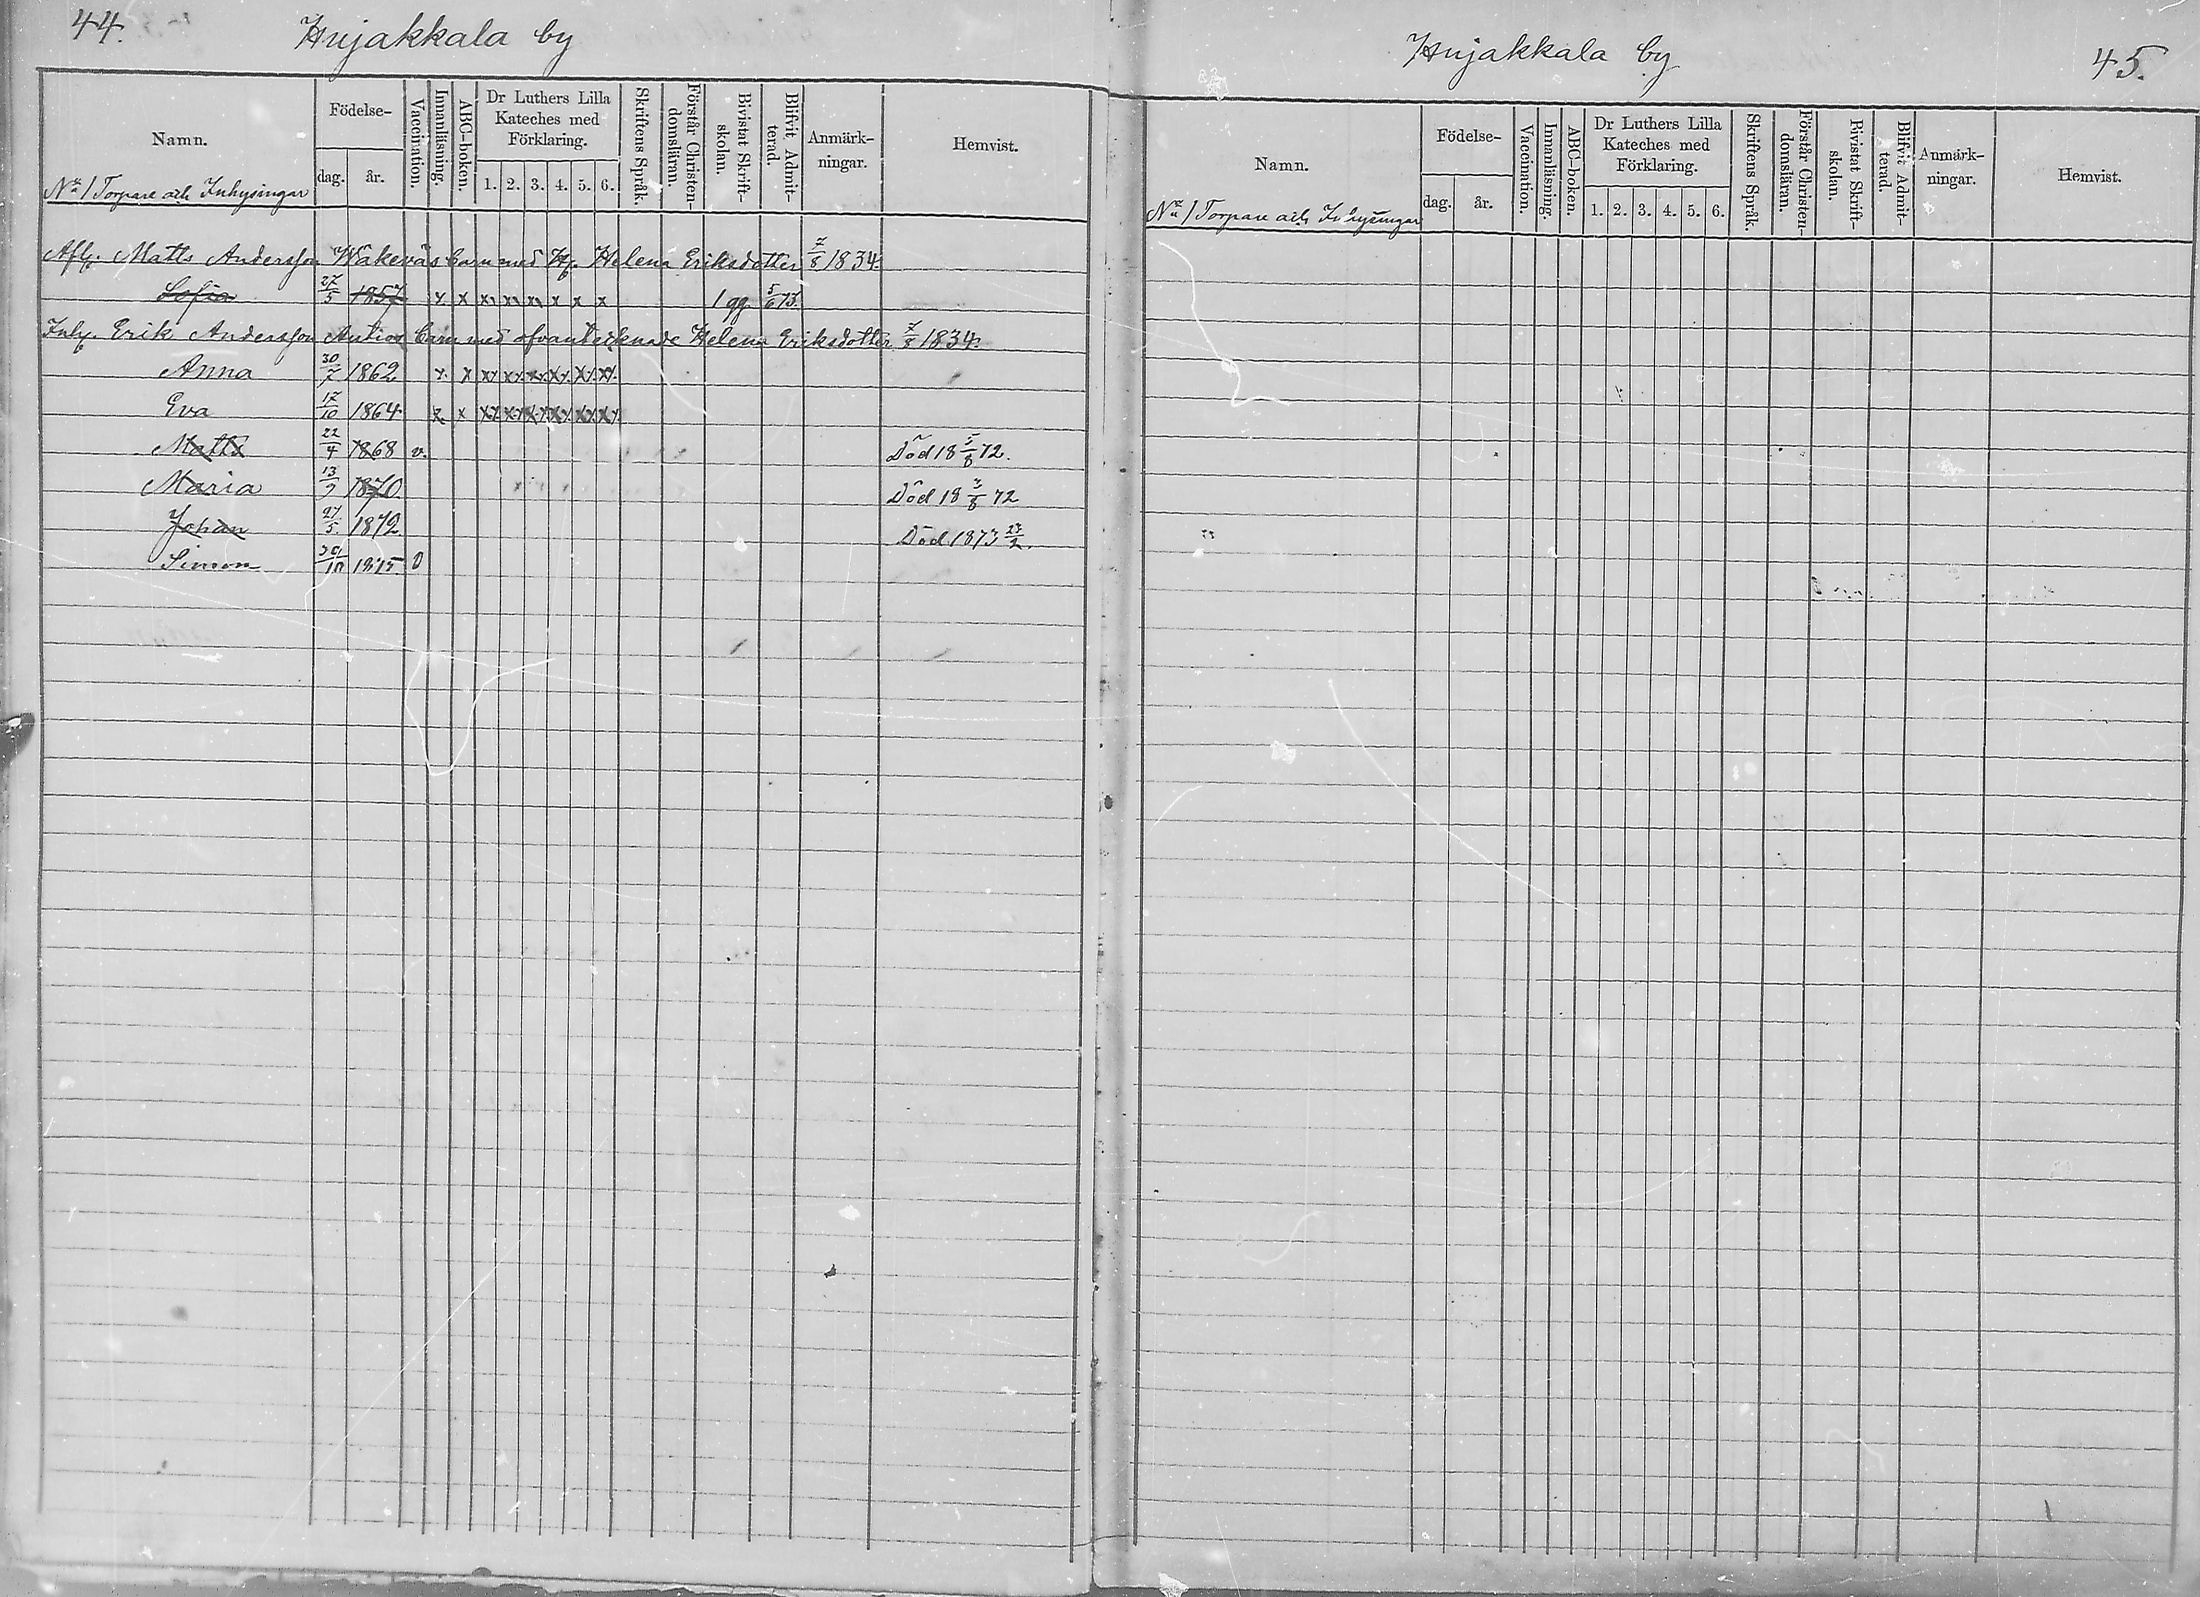 44.
Hujakkala by
Namn.
Födelse-
dag. år.
Vaccination.
Innanläsning.
ABC-boken.
Dr Luthers Lilla Kateches med Förklaring.
1. 2. 3. 4. 5. 6.
Skriftens Språk.
Förstår Christen-domsläran.
Bivistat Skrift-skolan.
Blifvit Admit-terad.
Anmärk-ningar.
Hemvist.
No 1 Torpare och Inhysingar
Afl. Matts Andersson Wäkeväs barn med H. Helena Eriksdotter 7/8 1834.
Sofia 27/5 1857 x x x x x x x x 1 gg 5/6 73.
Inh. Erik Andersson Anttos barn med ofvantecknade Helena Eriksdotter 7/8 1834.
Anna 30/7 1862
Eva 17/10 1864
Matts 22/4 1868 v. Död 18 5/8 72.
Maria 13/9 1870 Död 18 3/8 72
Johan 27/5 1872 Död 1873 27/2.
Simon 1875
Hujakkala by
45.
Namn.
Födelse-
dag. år.
Vaccination.
Innanläsning.
ABC-boken.
Dr Luthers Lilla Kateches med Förklaring.
1. 2. 3. 4. 5. 6.
Skriftens Språk.
Förstår Christen-domsläran.
Bivistat Skrift-skolan.
Blifvit Admit-terad.
Anmärk-ningar.
Hemvist.
No 1 Torpare och Inhysingar